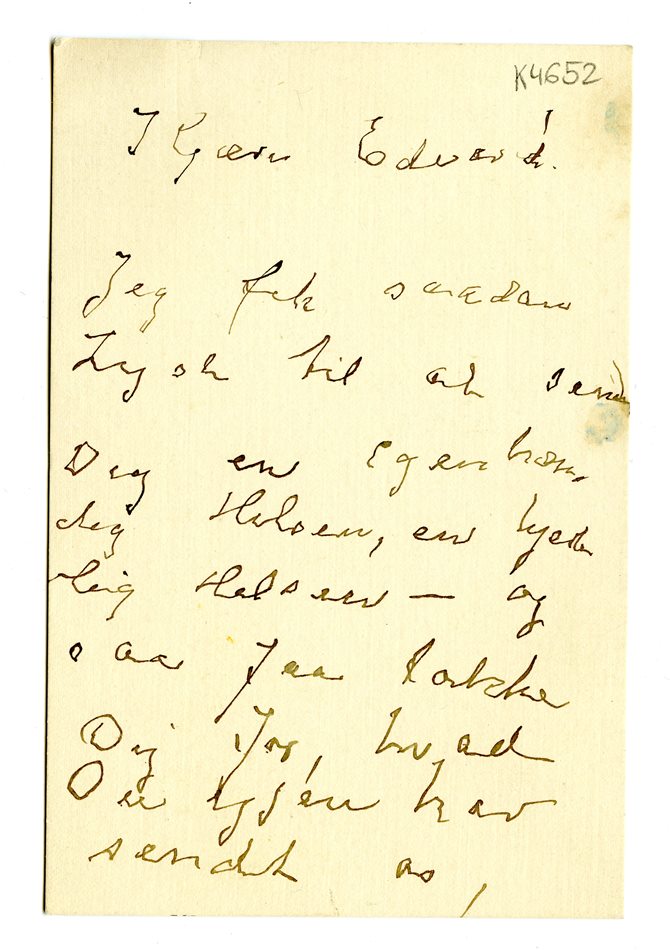 K4652
Kjære Edvard.
Jeg fik saadan
Lyst til at sende
Dig en egenhæn-
dig Hilsen, en hjerte
lig Hilsen — og
saa faa takke
Dig for, hvad
Du igjen har
sendt os,